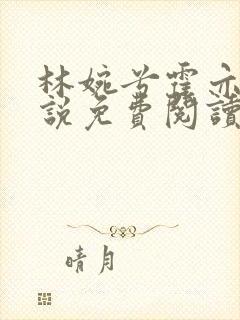 林婉兮霍亦
說免費閱讀
晴月